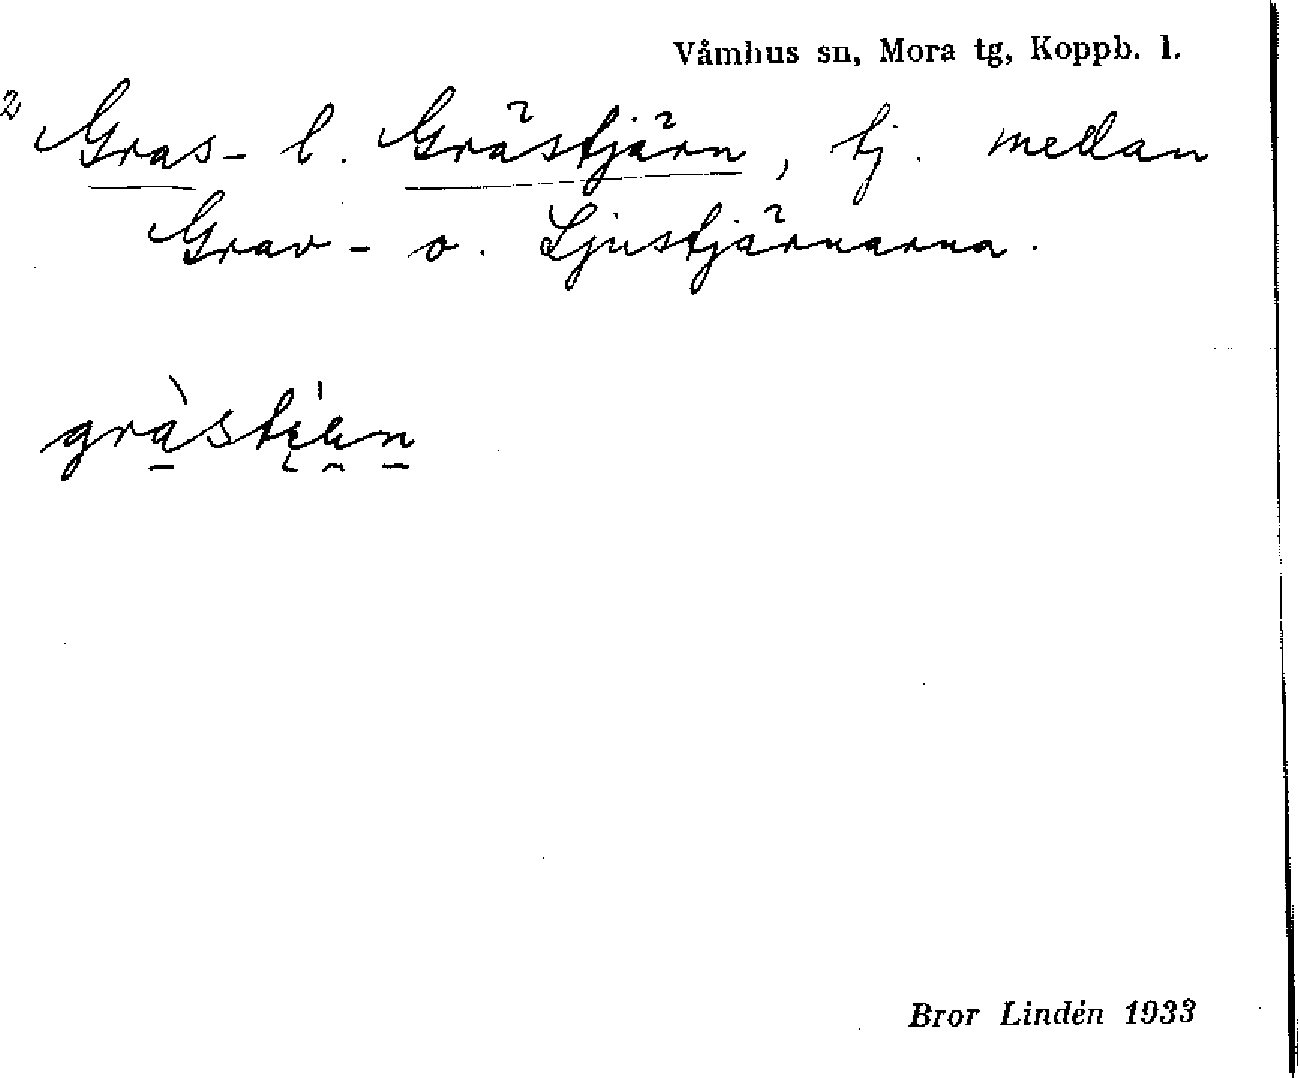 Våmhus sn, Mora tg, Koppb. l.
2 Gras- l. Grästjärn, tj. mellan
Grav- o. Ljustjärnarna.
Bror Lindén 1933